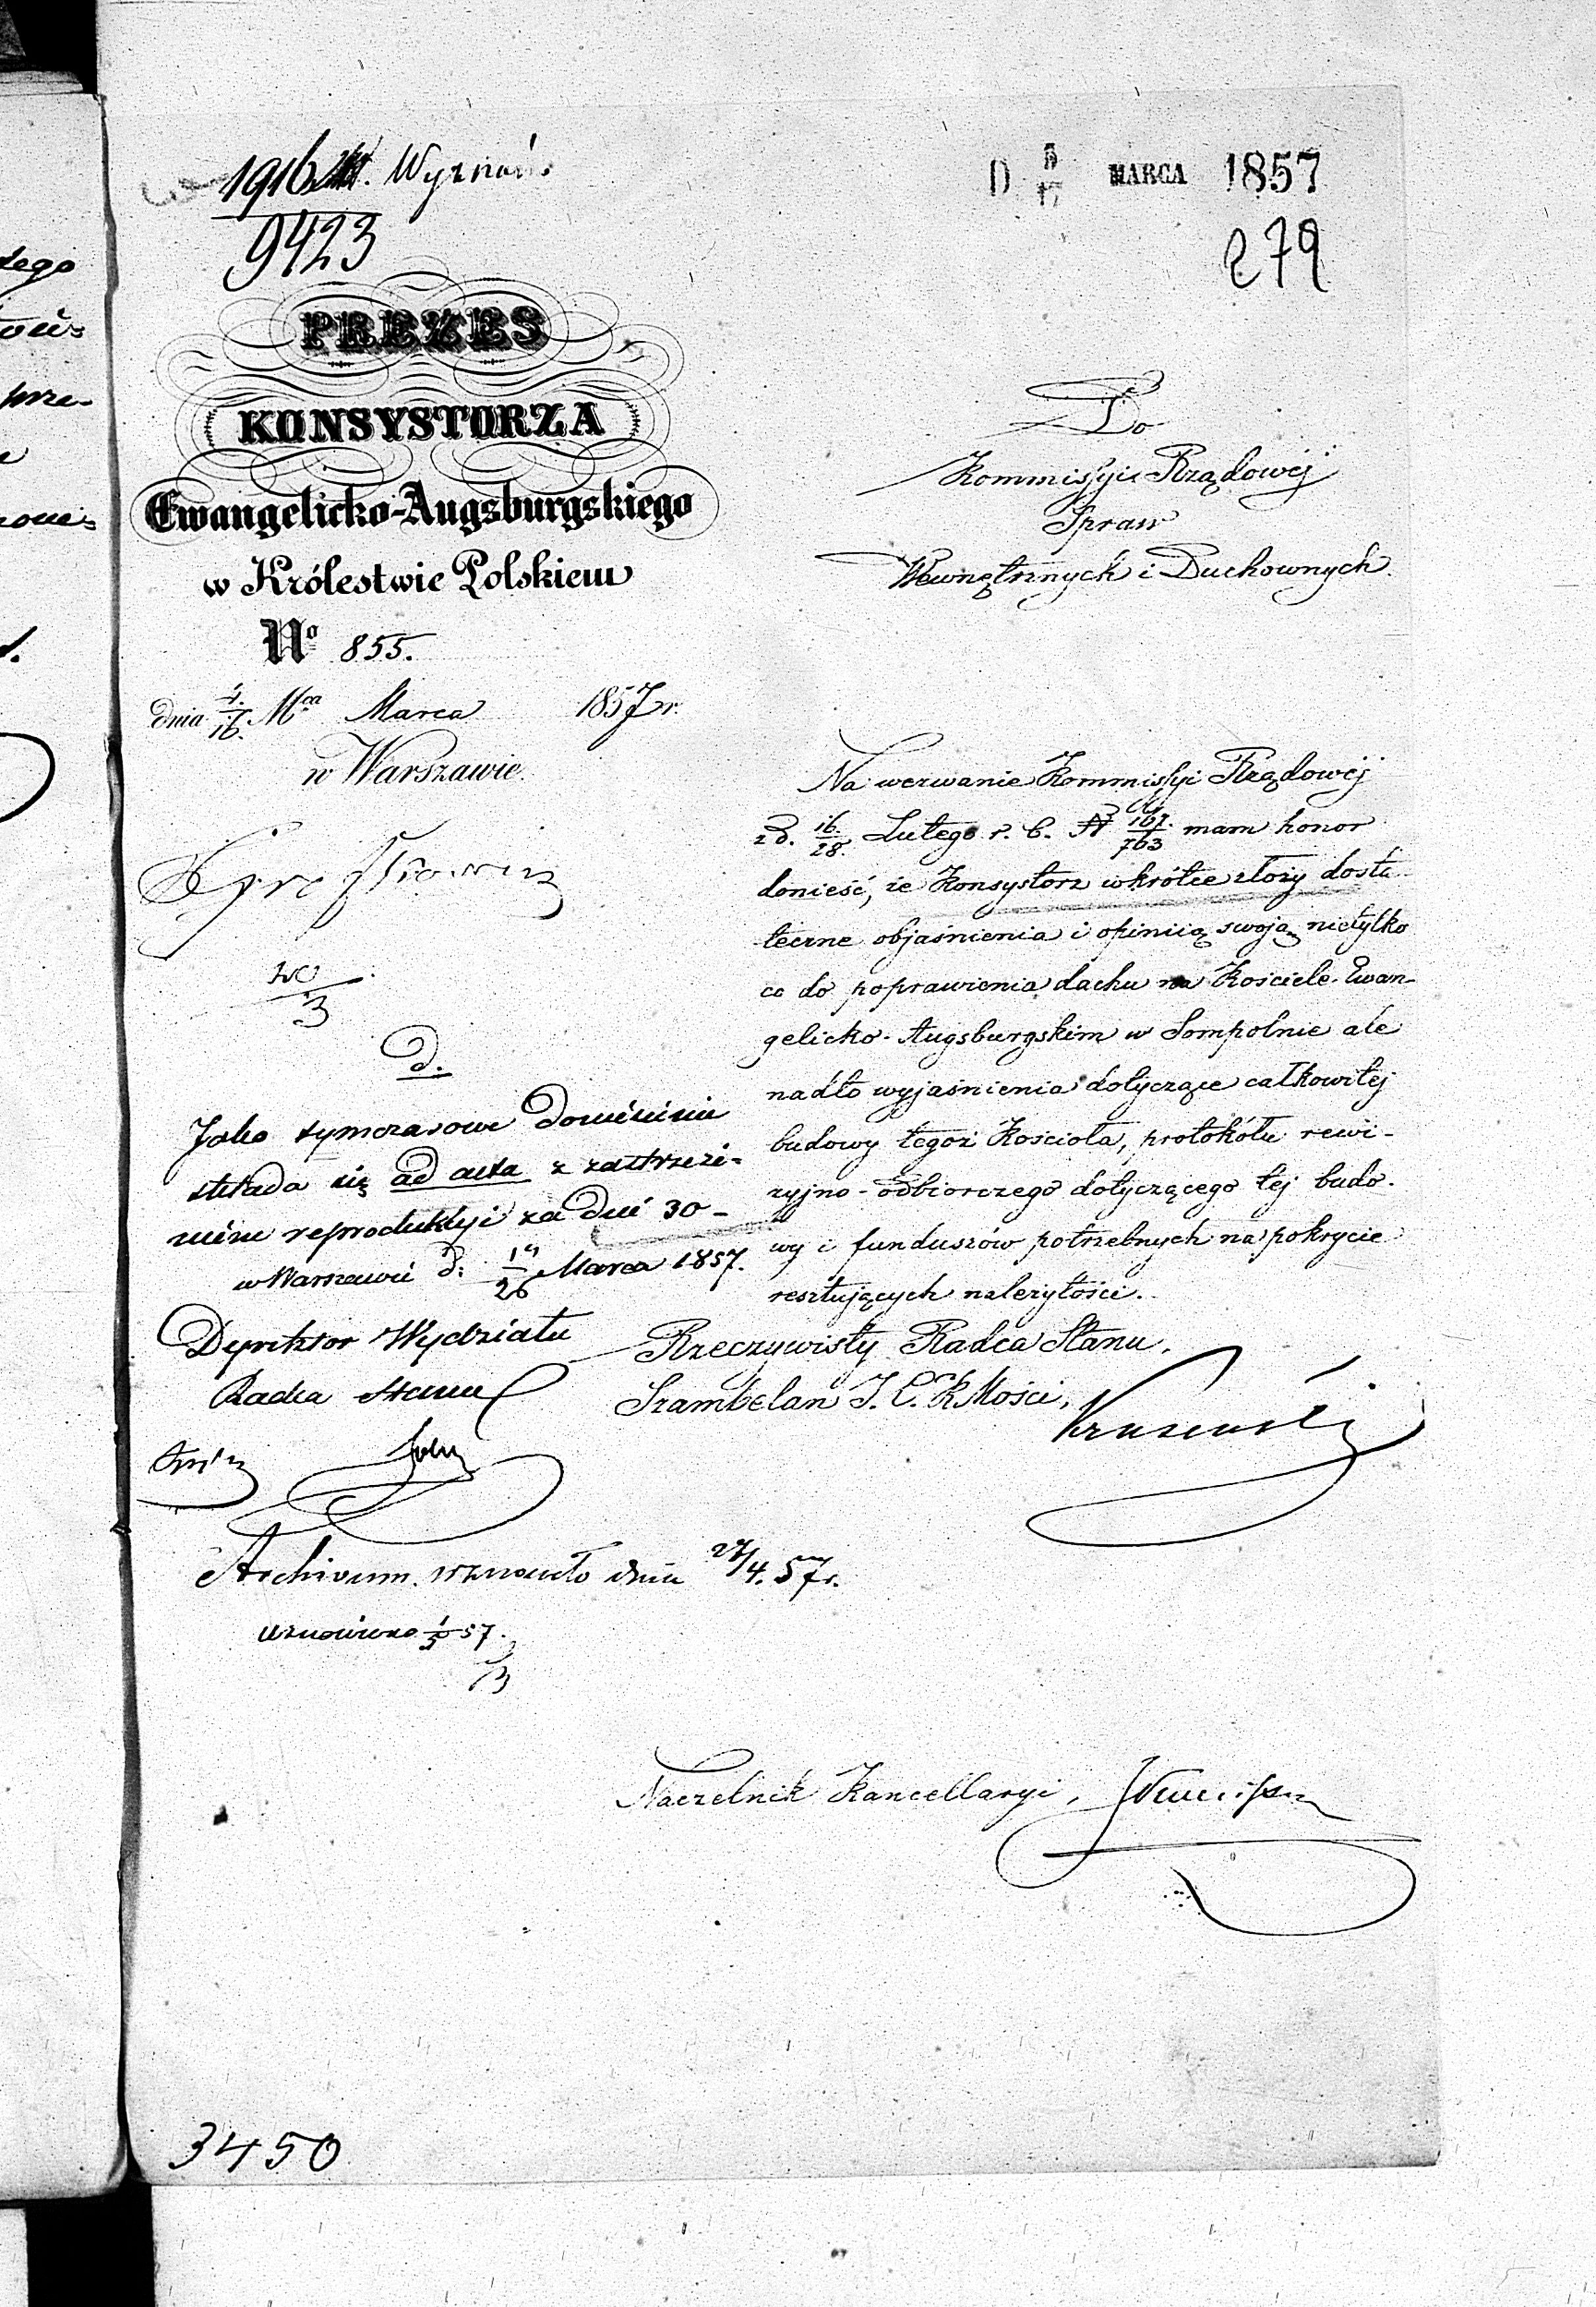 1916 Wyznań
9423
D 5/17 MARCA 1857
279
PREZES
KONSYSTORZA
Ewangelicko-Augsburgskiego
w Królestwie Polskiem
No 855.
dnia 4/16. Mca Marca 1857 r.
w Warszawie.
Do
Kommissyi Rządowéj
Spraw
Wewnętrznych i Duchownych.
Na wezwanie Kommissyi Rządowéj
z d. 16./28. Lutego r. b. N 167./763 mam honor
donieść, że Konsystorz wkrótce złoży dosta-
teczne objaśnienia i opiniią swoją nietylko
co do poprawienia dachu na Kościele Ewan-
gelicko-Augsburgskim w Sompolnie ale
nadto wyjaśnienia dotyczące całkowitej
budowy tegoż Kościoła, protokółu rewi-
zyjno-odbiorczego dotyczącego tej budo-
wy i funduszów potrzebnych na pokrycie
resztujących należytości.
Rzeczywisty Radca Stanu,
Szambelan J. C. K Mości,
Naczelnik Kancellaryi,
D.
Jako tymczasowe doniesienie
składa się ad acta z zastrzeże-
niem reprodukcyi za dni 30-
w Warszawie d: 14/26 Marca 1857.
Dyrektor Wydziału
Radca Stanu
Archivum wznowiło dnia 27/4. 57 r.
wznowiono 1/5 57.
3450
tego
prze-